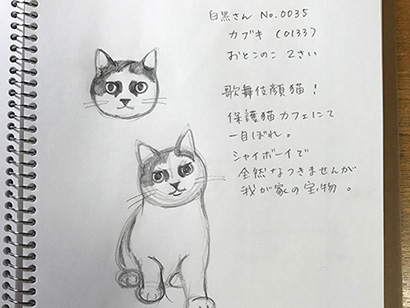 白黒さん No.0035
カブキ (0133)
おとこのこ 2さい
歌舞伎顔猫！
保護猫カフェにて
一目ぼれ。
シャイボーイで
全然なつきませんが
我が家の宝物。